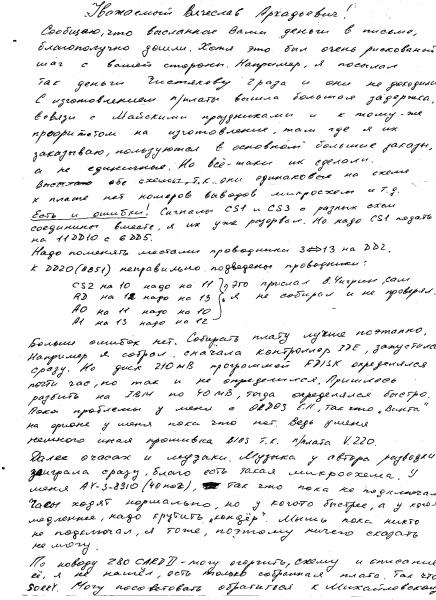 Уважаемый Вячеслав Аркадьевич!
Сообщаю, что высланные Вами деньги в письме,
благополучно дошли. Хотя это был очень рискованый
шаг с вашей стороны. Например, я посылал
так деньги Чистякову 2 раза и они не доходили
С изготовлением п/платы вышла большая задержка,
в связи с Майскими праздниками и к тому-же
приоритетом на изготовление, там где я их
заказываю, пользуются в основном большие заказы,
а не единичные. Но всё-таки их сделали.
обе схемы, т.к. они одинаковые на схеме
к плате нет номеров выводов микросхем и т.д.
Есть и ошибки! Сигналы CS1 и CS3 с разных схем
соединины вместе, я их уже разорвал. Но надо CS1 подать
на 11DD10 с 6DD5.
Надо поменять местами проводники 3⇔13 на DD2,
К DD20(8251) неправильно подведены проводники:
CS2 на 10 надо на 11 } это прислал В. Чигрин, сам
RD на 12 надо на 13 } я не собирал и не проверял.
A0 на 11 надо на 10
A1 на 13 надо на 12
Больше ошибок нет. Собирать плату лучше поэтапно.
Например я собрал сначала контроллер IDE, запустил
сразу. Но диск 210МВ програмой FDISK определялся
почти час, но так и не определился. Пришлось
разбить на IBM по 40МВ, тогда определялся быстро.
Пока проблемы у меня с ORDOS F.H, так что „Винта"
на орионе у меня пока что нет. Ведь у меня
немного иная прошивка BIOS т.к. п/плата V.220.
Далее о часах и музыки. Музыка у автора разводки
заиграла сразу, благо есть такая микросхема. У
меня AY-3-8910 (40 ног), так что пока не подключал
Часы ходят нормально, но у кого-то быстрее, а у кого-то
медленнее, надо крутить „кондёр". Мышь пока никто
не подключал, я тоже, поэтому ничего сказать
не могу.
По поводу Z80 CARD II - могу огорчить, схему и описание
её, я не нашёл, есть только собранная плата. Так что
sorry. Могу посоветовать обратиться к Михайловскому